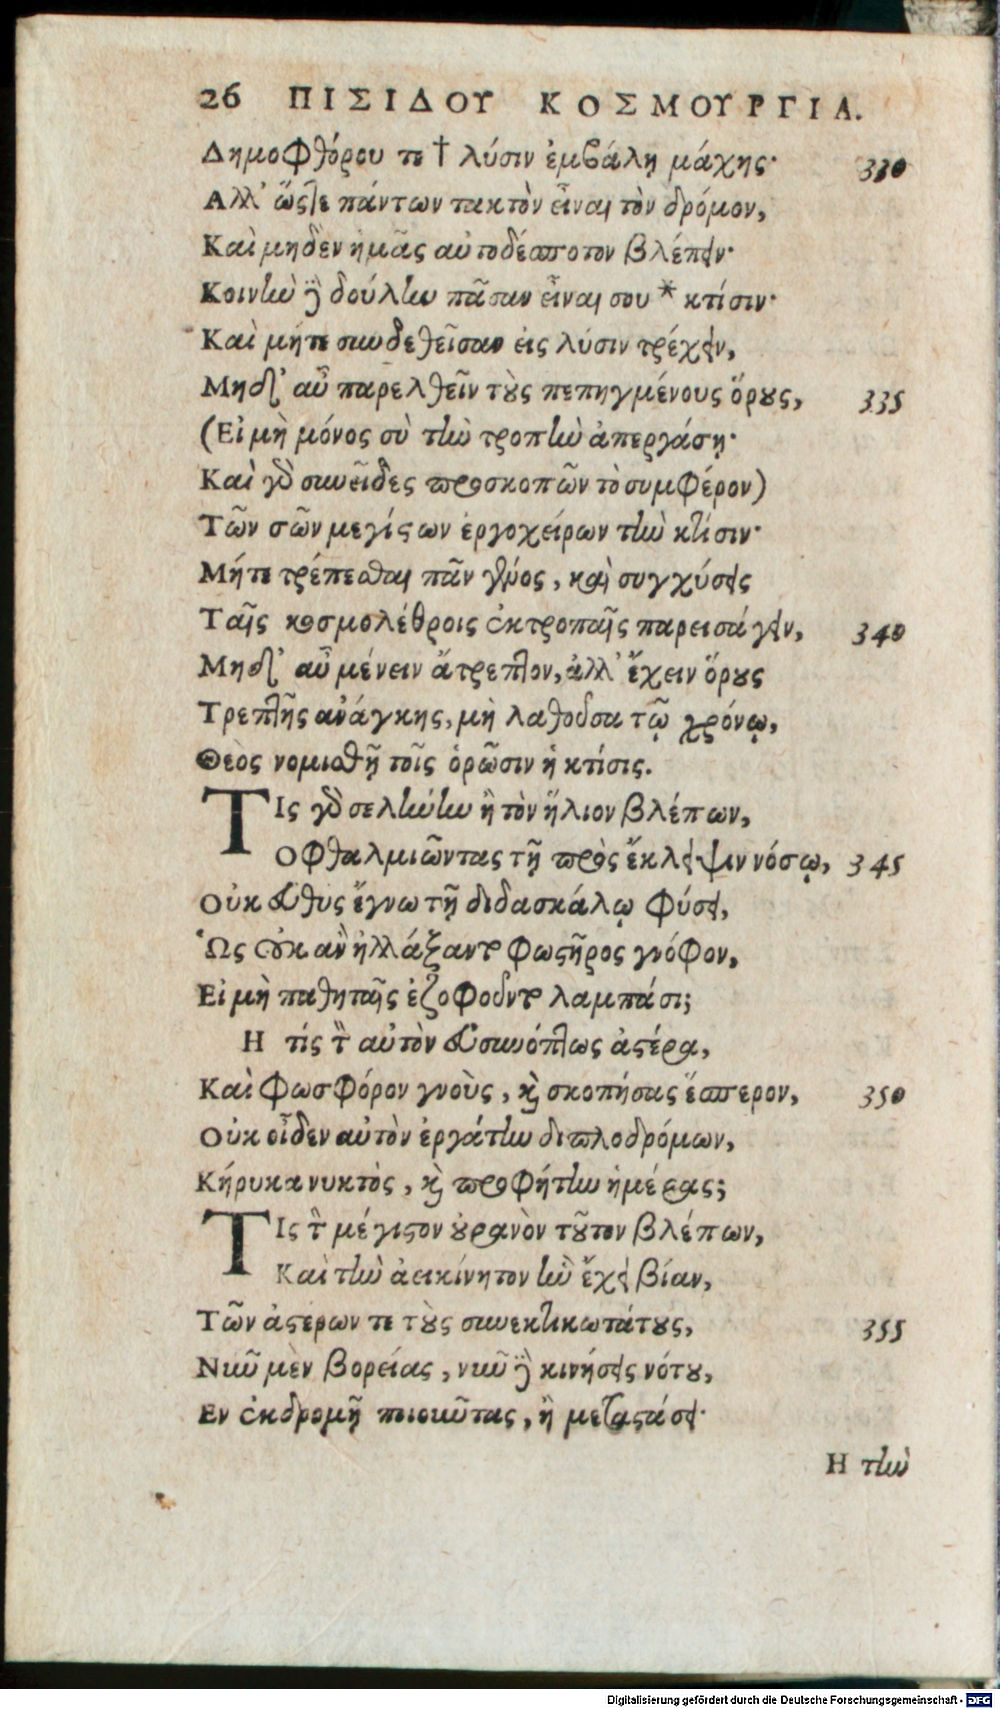 26 ΠΙΣΙΔΟΥ ΚΟΣΜΟΥΡΓΙΑ.
Δημοφθόρου τε † λύσιν ἐμβάλῃ μάχης· 330
Αλλ' ὥστε πάντων τακτὸν εἶναι τὸν δρόμον,
Καὶ μηδὲν ἡμᾶς αὐτοδέσποτον βλέπειν·
Κοινὴν δὲ δούλην πᾶσαν εἶναι σου * κτίσιν·
Καὶ μήτε συνδεθεῖσαν εἰς λύσιν τρέχειν,
Μηδ' αὖ παρελθεῖν τοὺς πεπηγμένους ὅρους, 335
(Εἰ μὴ μόνος σὺ τὴν τροπὴν ἀπεργάσῃ·
Καὶ γὰρ συνεῖδες προσκοπῶν τὸ συμφέρον)
Τῶν σῶν μεγίστων ἐργοχείρων τὴν κτίσιν·
Μήτε τρέπεσθαι πᾶν γένος, καὶ συγχύσεις
Ταῖς κοσμολέθροις ἐκτροπαῖς παρεισάγειν, 340
Μηδ' αὖ μένειν ἄτρεπτον, ἀλλ' ἔχειν ὅρους
Τρεπτῆς ἀνάγκης, μὴ λαθοῦσα τῷ χρόνῳ,
Θεὸς νομισθῇ τοῖς ὁρῶσιν ἡ κτίσις.
Τὶς γὰρ σελήνην ἢ τὸν ἥλιον βλέπων,
Οφθαλμιῶντας τῇ πρὸς ἔκλειψιν νόσῳ, 345
Οὐκ εὐθὺς ἔγνω τῇ διδασκάλῳ φύσει,
Ὡς οὐκ ἂν ἠλλάξαντο φωστῆρος γνόφον,
Εἰ μὴ παθηταῖς ἐζοφοῦντο λαμπάσι;
Η τίς τ αὐτὸν εὐσυνόπτως ἀστέρα,
Καὶ φωσφόρον γνοὺς, καὶ σκοπήσας ἕσπερον, 350
Οὐκ οἶδεν αὐτὸν ἐργάτην διπλοδρόμων,
Κήρυκα νυκτὸς, καὶ προφήτην ἡμέρας;
Τὶς τ μέγιστον οὐρανὸν τοῦτον βλέπων,
Καὶ τὴν ἀεικίνητον ἣν ἔχει βίαν,
Τῶν ἀστέρων τε τοὺς συνεκτικωτάτους, 355
Νῦν μὲν βορείας, νῦν δὲ κινήσεις νότου,
Εν ἐκδρομῇ ποιοῦντας, ἢ μεταστάσει·
Η τὴν
Digitalisierung gefördert durch die Deutsche Forschungsgemeinschaft - DFG